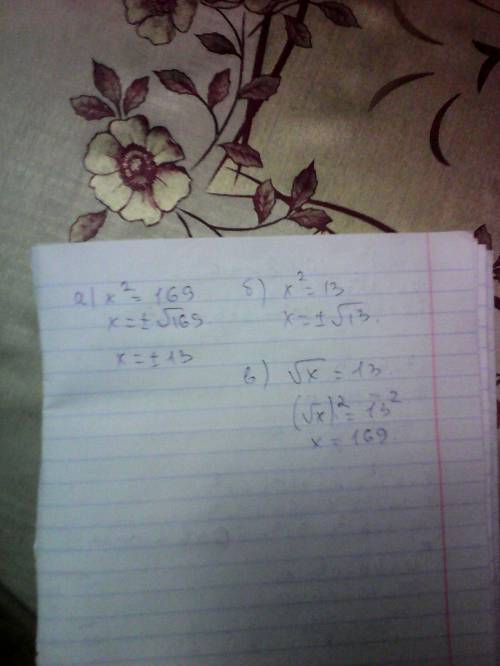 а) x² = 169
x = ± √169
x = ± 13
б) x² = 13
x = ± √13.
в) √x = 13.
(√x)² = 13²
x = 169.